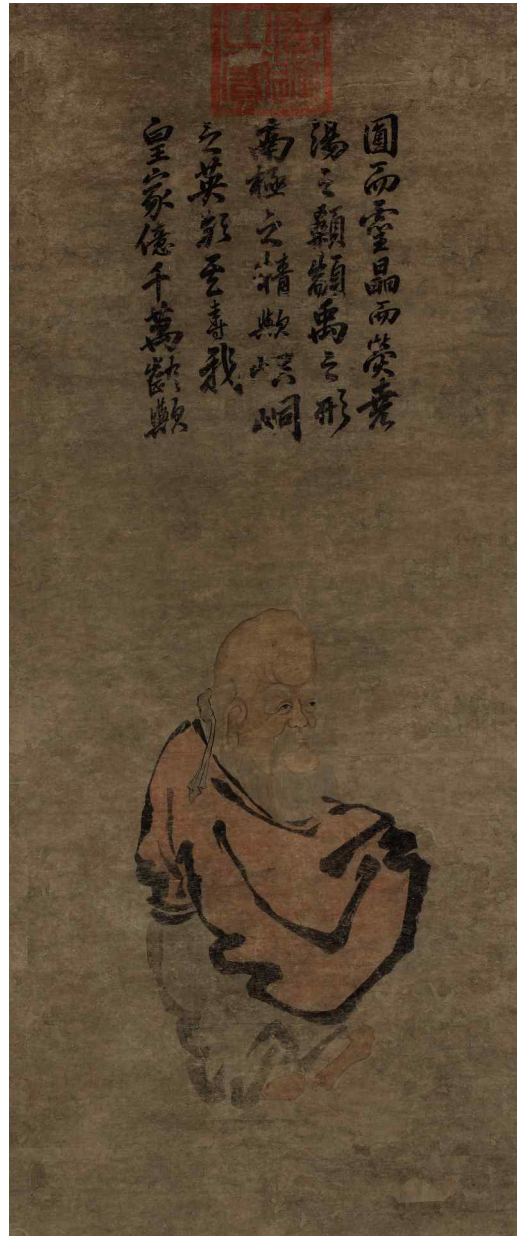 圓而靈晶而熒堯
湯之顙禹之形
南極之精歟崆峒
之英歟壽我
皇家億千萬齡歟